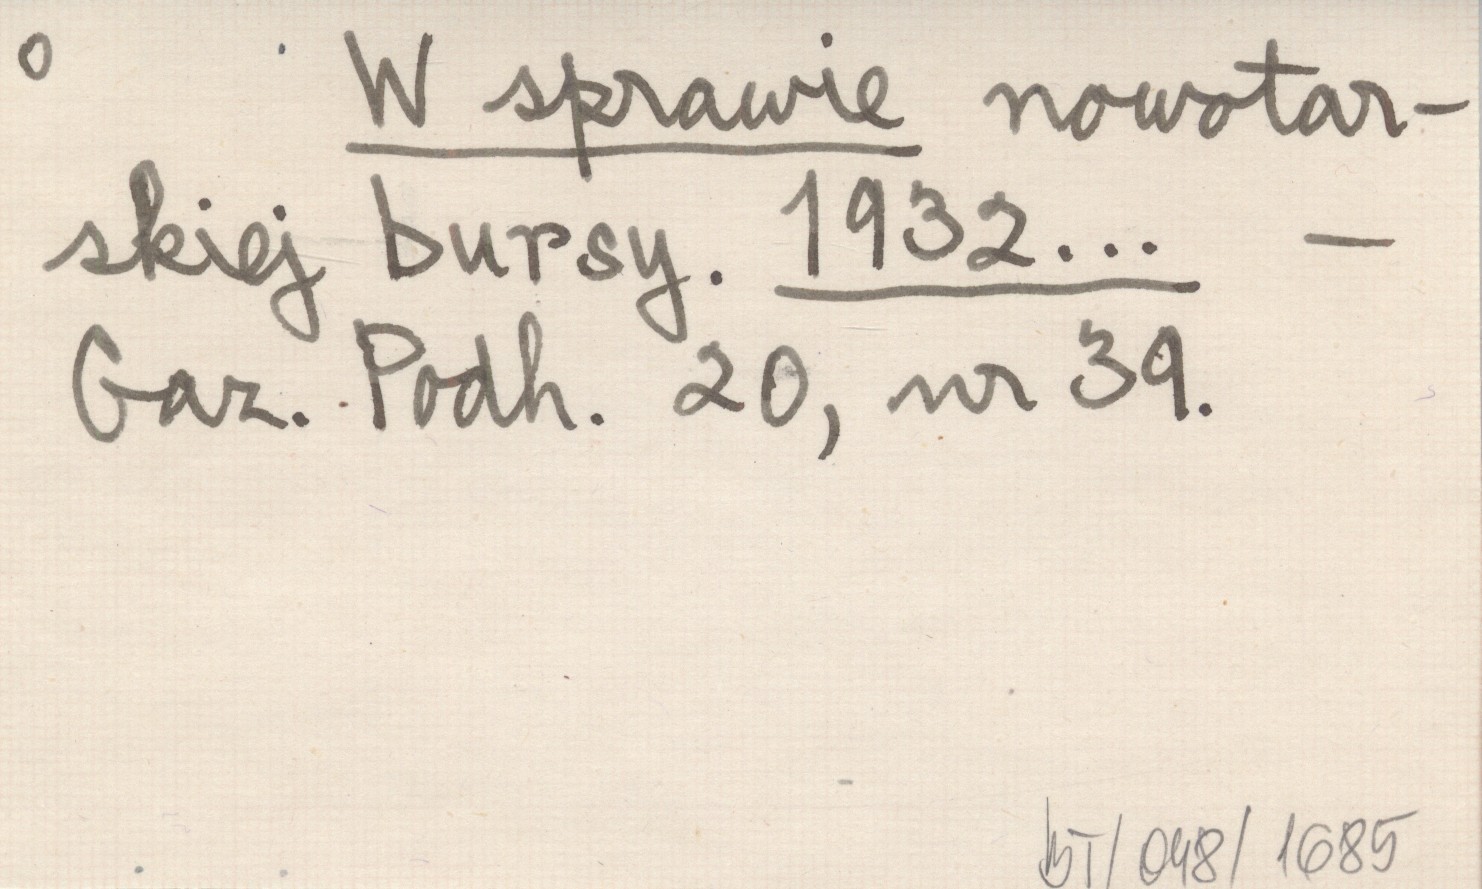 o W sprawie nowotar-
skiej bursy. 1932... —
Gaz. Podh. 20, nr 39.
BT/048/1685